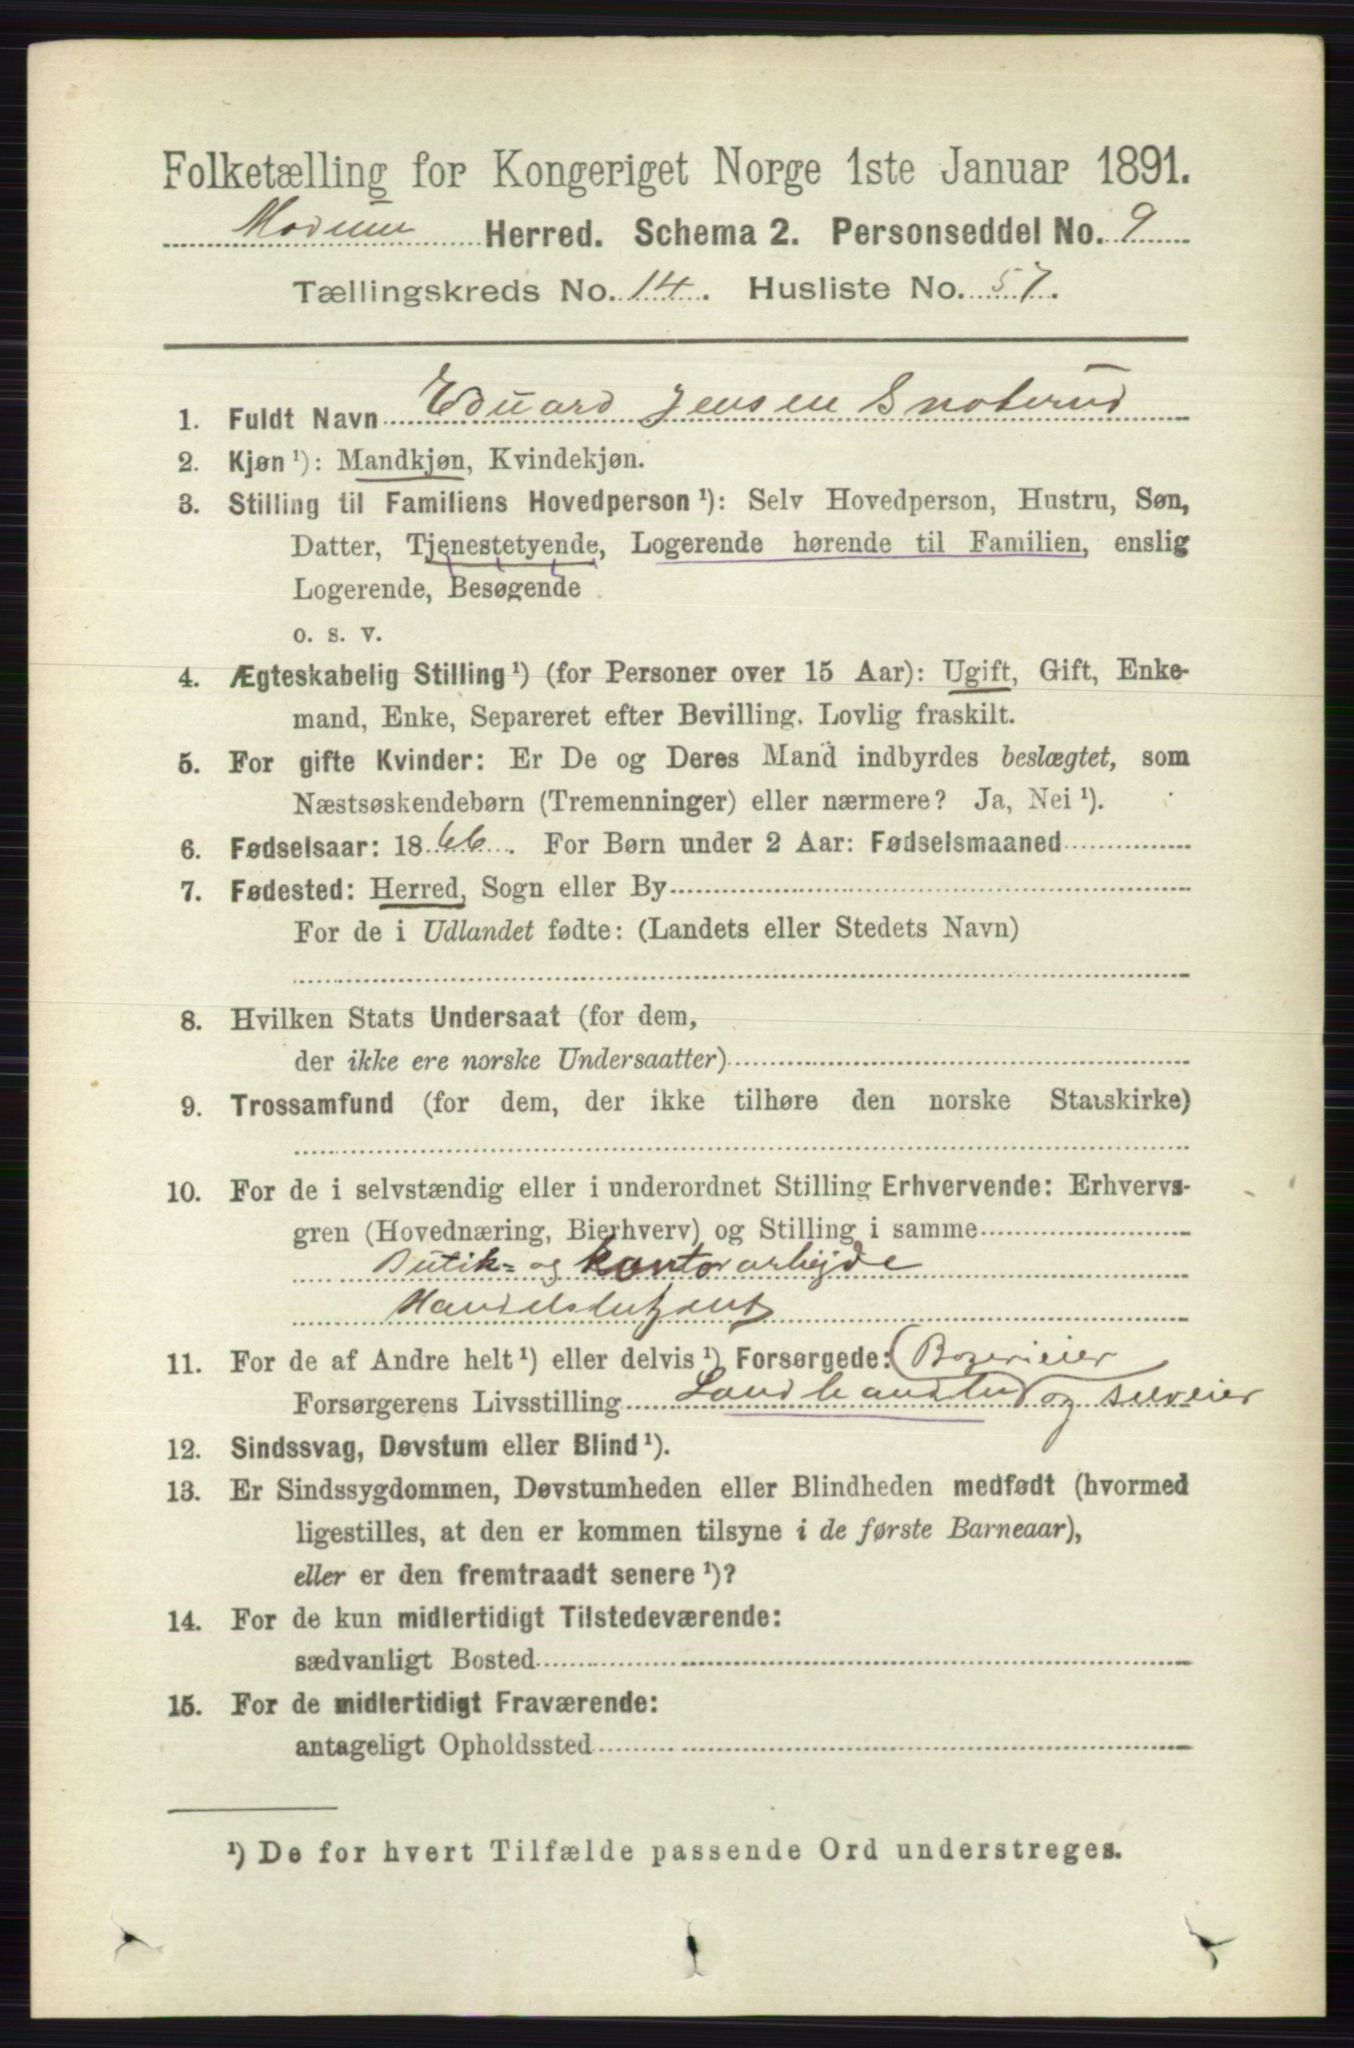 Folketælling for Kongeriget Norge 1ste Januar 1891.
Modum Herred. Schema 2. Personseddel No. 9
Tællingskreds No. 14. Husliste No. 57.
1. Fuldt Navn Eduard Jensen Snoterud
2. Kjøn ¹): Mandkjøn, Kvindekjøn.
3. Stilling til Familiens Hovedperson ¹): Selv Hovedperson, Hustru, Søn,
Datter, Tjenestetyende, Logerende hørende til Familien, enslig
Logerende, Besøgende
o. s. v.
4. Ægteskabelig Stilling ¹) (for Personer over 15 Aar): Ugift, Gift, Enke-
mand, Enke, Separeret efter Bevilling. Lovlig fraskilt.
5. For gifte Kvinder: Er De og Deres Mand indbyrdes beslægtet, som
Næstsøskendebørn (Tremenninger) eller nærmere? Ja, Nei ¹).
6. Fødselsaar: 1866. For Børn under 2 Aar: Fødselsmaaned
7. Fødested: Herred, Sogn eller By
For de i Udlandet fødte: (Landets eller Stedets Navn)
8. Hvilken Stats Undersaat (for dem,
der ikke ere norske Undersaatter)
9. Trossamfund (for dem, der ikke tilhøre den norske Statskirke)
10. For de i selvstændig eller i underordnet Stilling Erhvervende: Erhvervs-
gren (Hovednæring, Bierhverv) og Stilling i samme
Butik- og kontorarbejde
Handelsbetjent
11. For de af Andre helt ¹) eller delvis ¹) Forsørgede: (
Forsørgerens Livsstilling Landhandler og selveier
12. Sindssvag, Døvstum eller Blind ¹).
13. Er Sindssygdommen, Døvstumheden eller Blindheden medfødt (hvormed
ligestilles, at den er kommen tilsyne i de første Barneaar),
eller er den fremtraadt senere ¹)?
14. For de kun midlertidigt Tilstedeværende:
sædvanligt Bosted
15. For de midlertidigt Fraværende:
antageligt Opholdssted
¹) De for hvert Tilfælde passende Ord understreges.